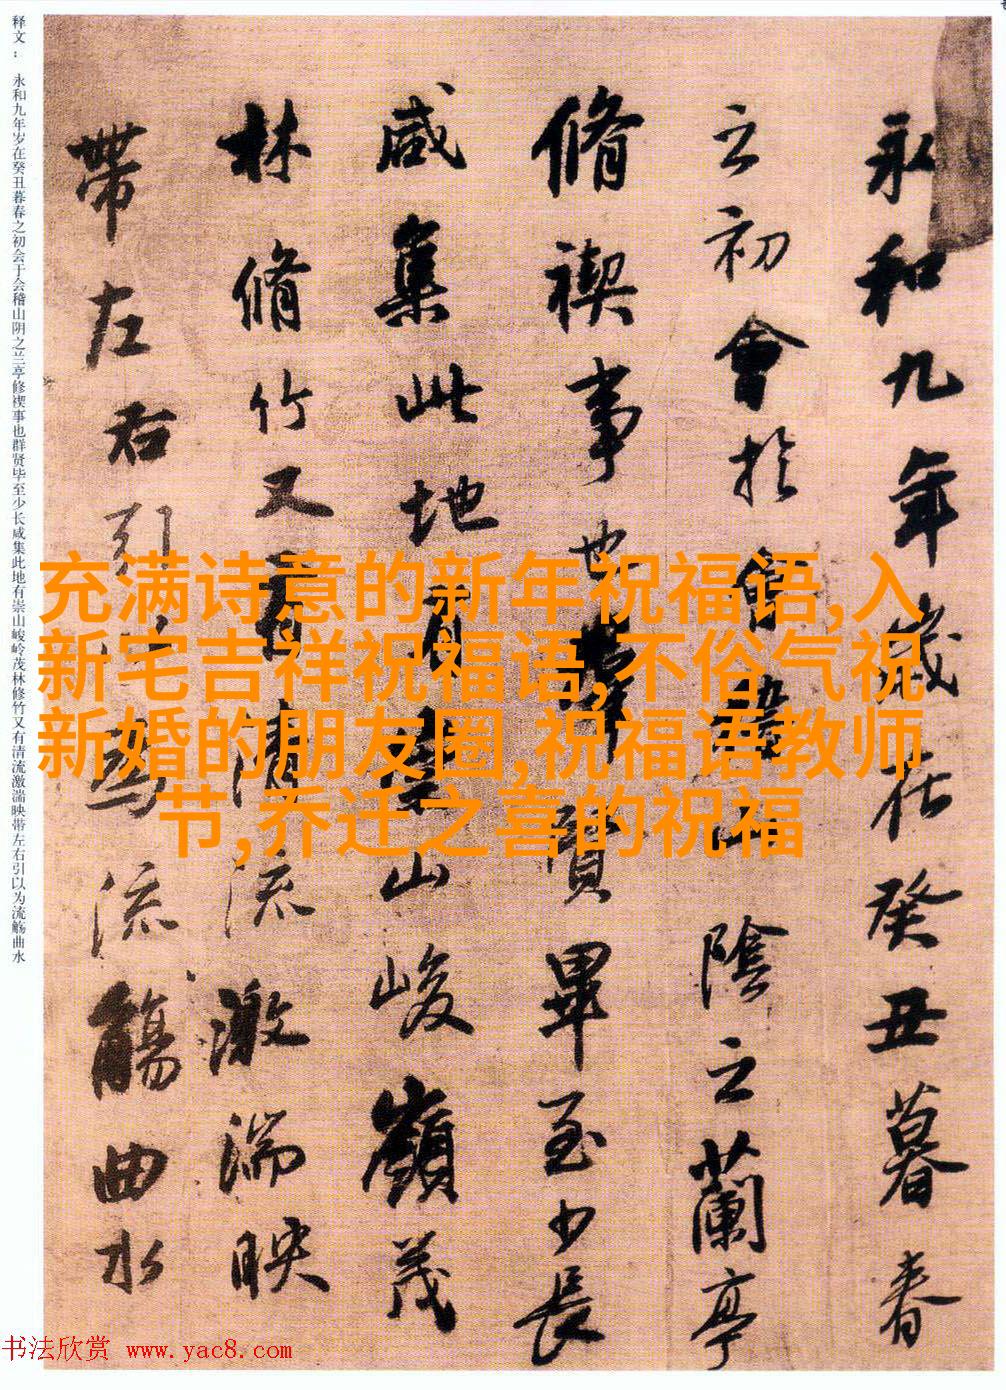 永和九年歲在癸丑暮春
之初會於會稽山陰之蘭亭
脩禊事也羣賢畢至少長
咸集此地有崇山峻嶺茂
林脩竹又有清流激湍映
帶左右引以為流觴曲水
释文： 永和九年岁在癸丑暮春之初会于会稽山阴之兰亭修禊事也群贤毕至少长咸集此地有崇山峻岭茂林修竹又有清流激湍映带左右引以为流觞曲水
充满诗意的新年祝福语,入
新宅吉祥祝福语,不俗气祝
新婚的朋友圈,祝福语教师
节,乔迁之喜的祝福
书法欣赏 www.yac8.com